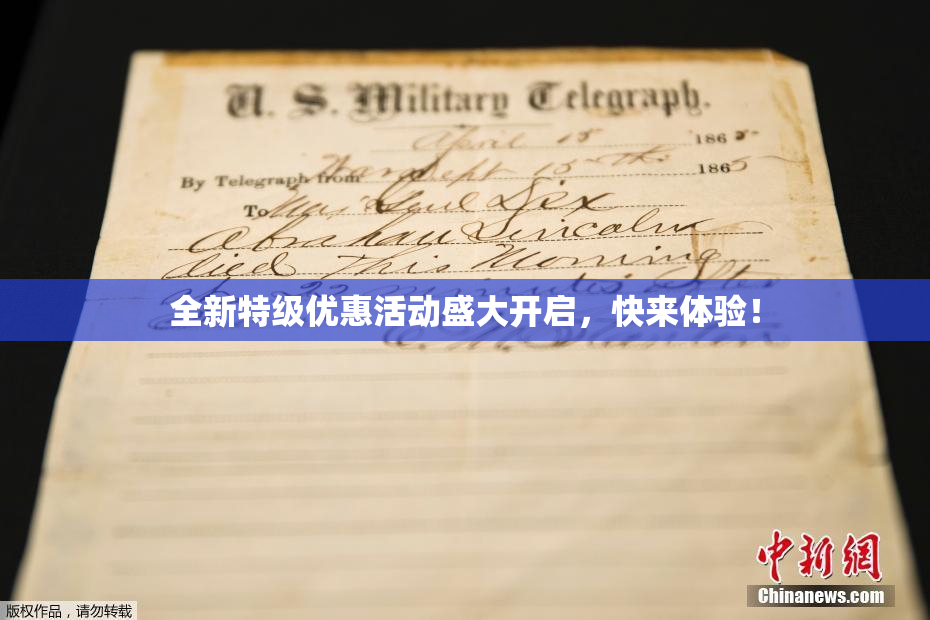 U. S. Military Telegraph.
April 15 1865
By Telegraph from War Dept 15th 1865
To Maj Genl Dix
Abraham Lincoln
died This Morning
22 minutes after
全新特级优惠活动盛大开启，快来体验！
E. M. Stanton
中新網
Chinanews.com
版权作品，请勿转载